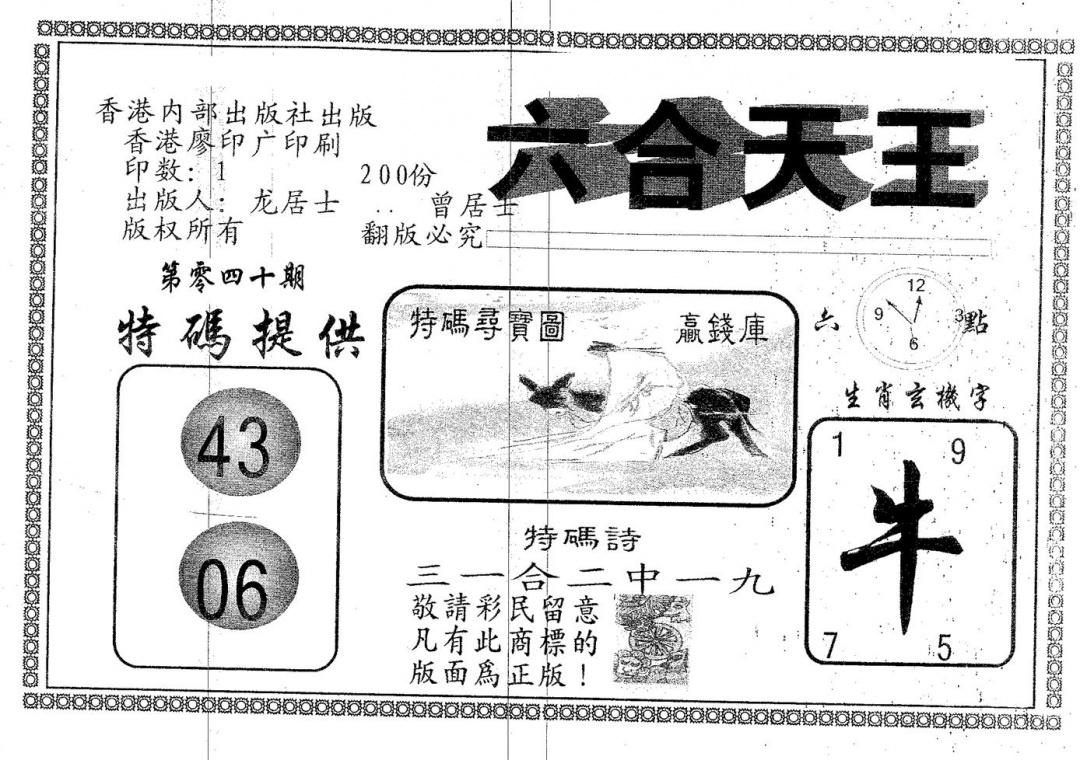 香港内部出版社出版
香港廖印广印刷
印数: 1 200份
出版人: 龙居士 .. 曾居士
版权所有 翻版必究
六合天王
第零四十期
特碼提供
43
06
特碼尋寶圖 贏錢庫
特碼詩
三一合二中一九
敬請彩民留意
凡有此商標的
版面爲正版!
六 點
12
9 3
6
生肖玄機字
1 9
牛
7 5